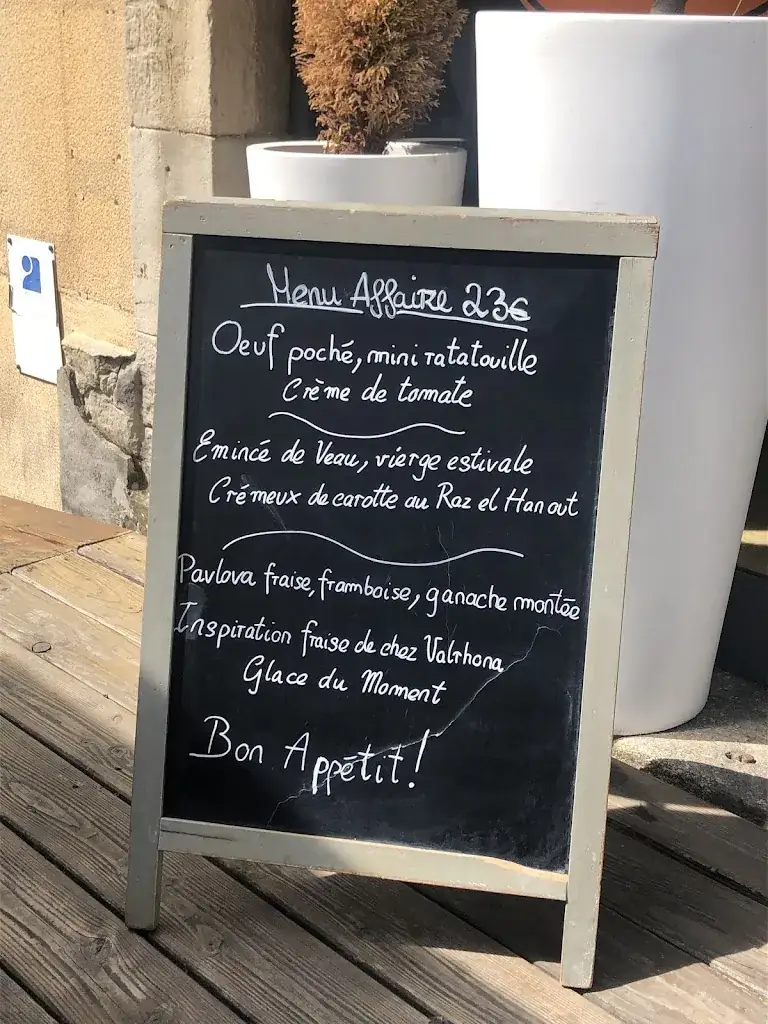 Menu Affaire 23€
Oeuf poché, mini ratatouille
Crème de tomate
Emincé de Veau, vierge estivale
Crémeux de carotte au Raz el Hanout
Pavlova fraise, framboise, ganache montée
Inspiration fraise de chez Valrhona
Glace du Moment
Bon Appétit !